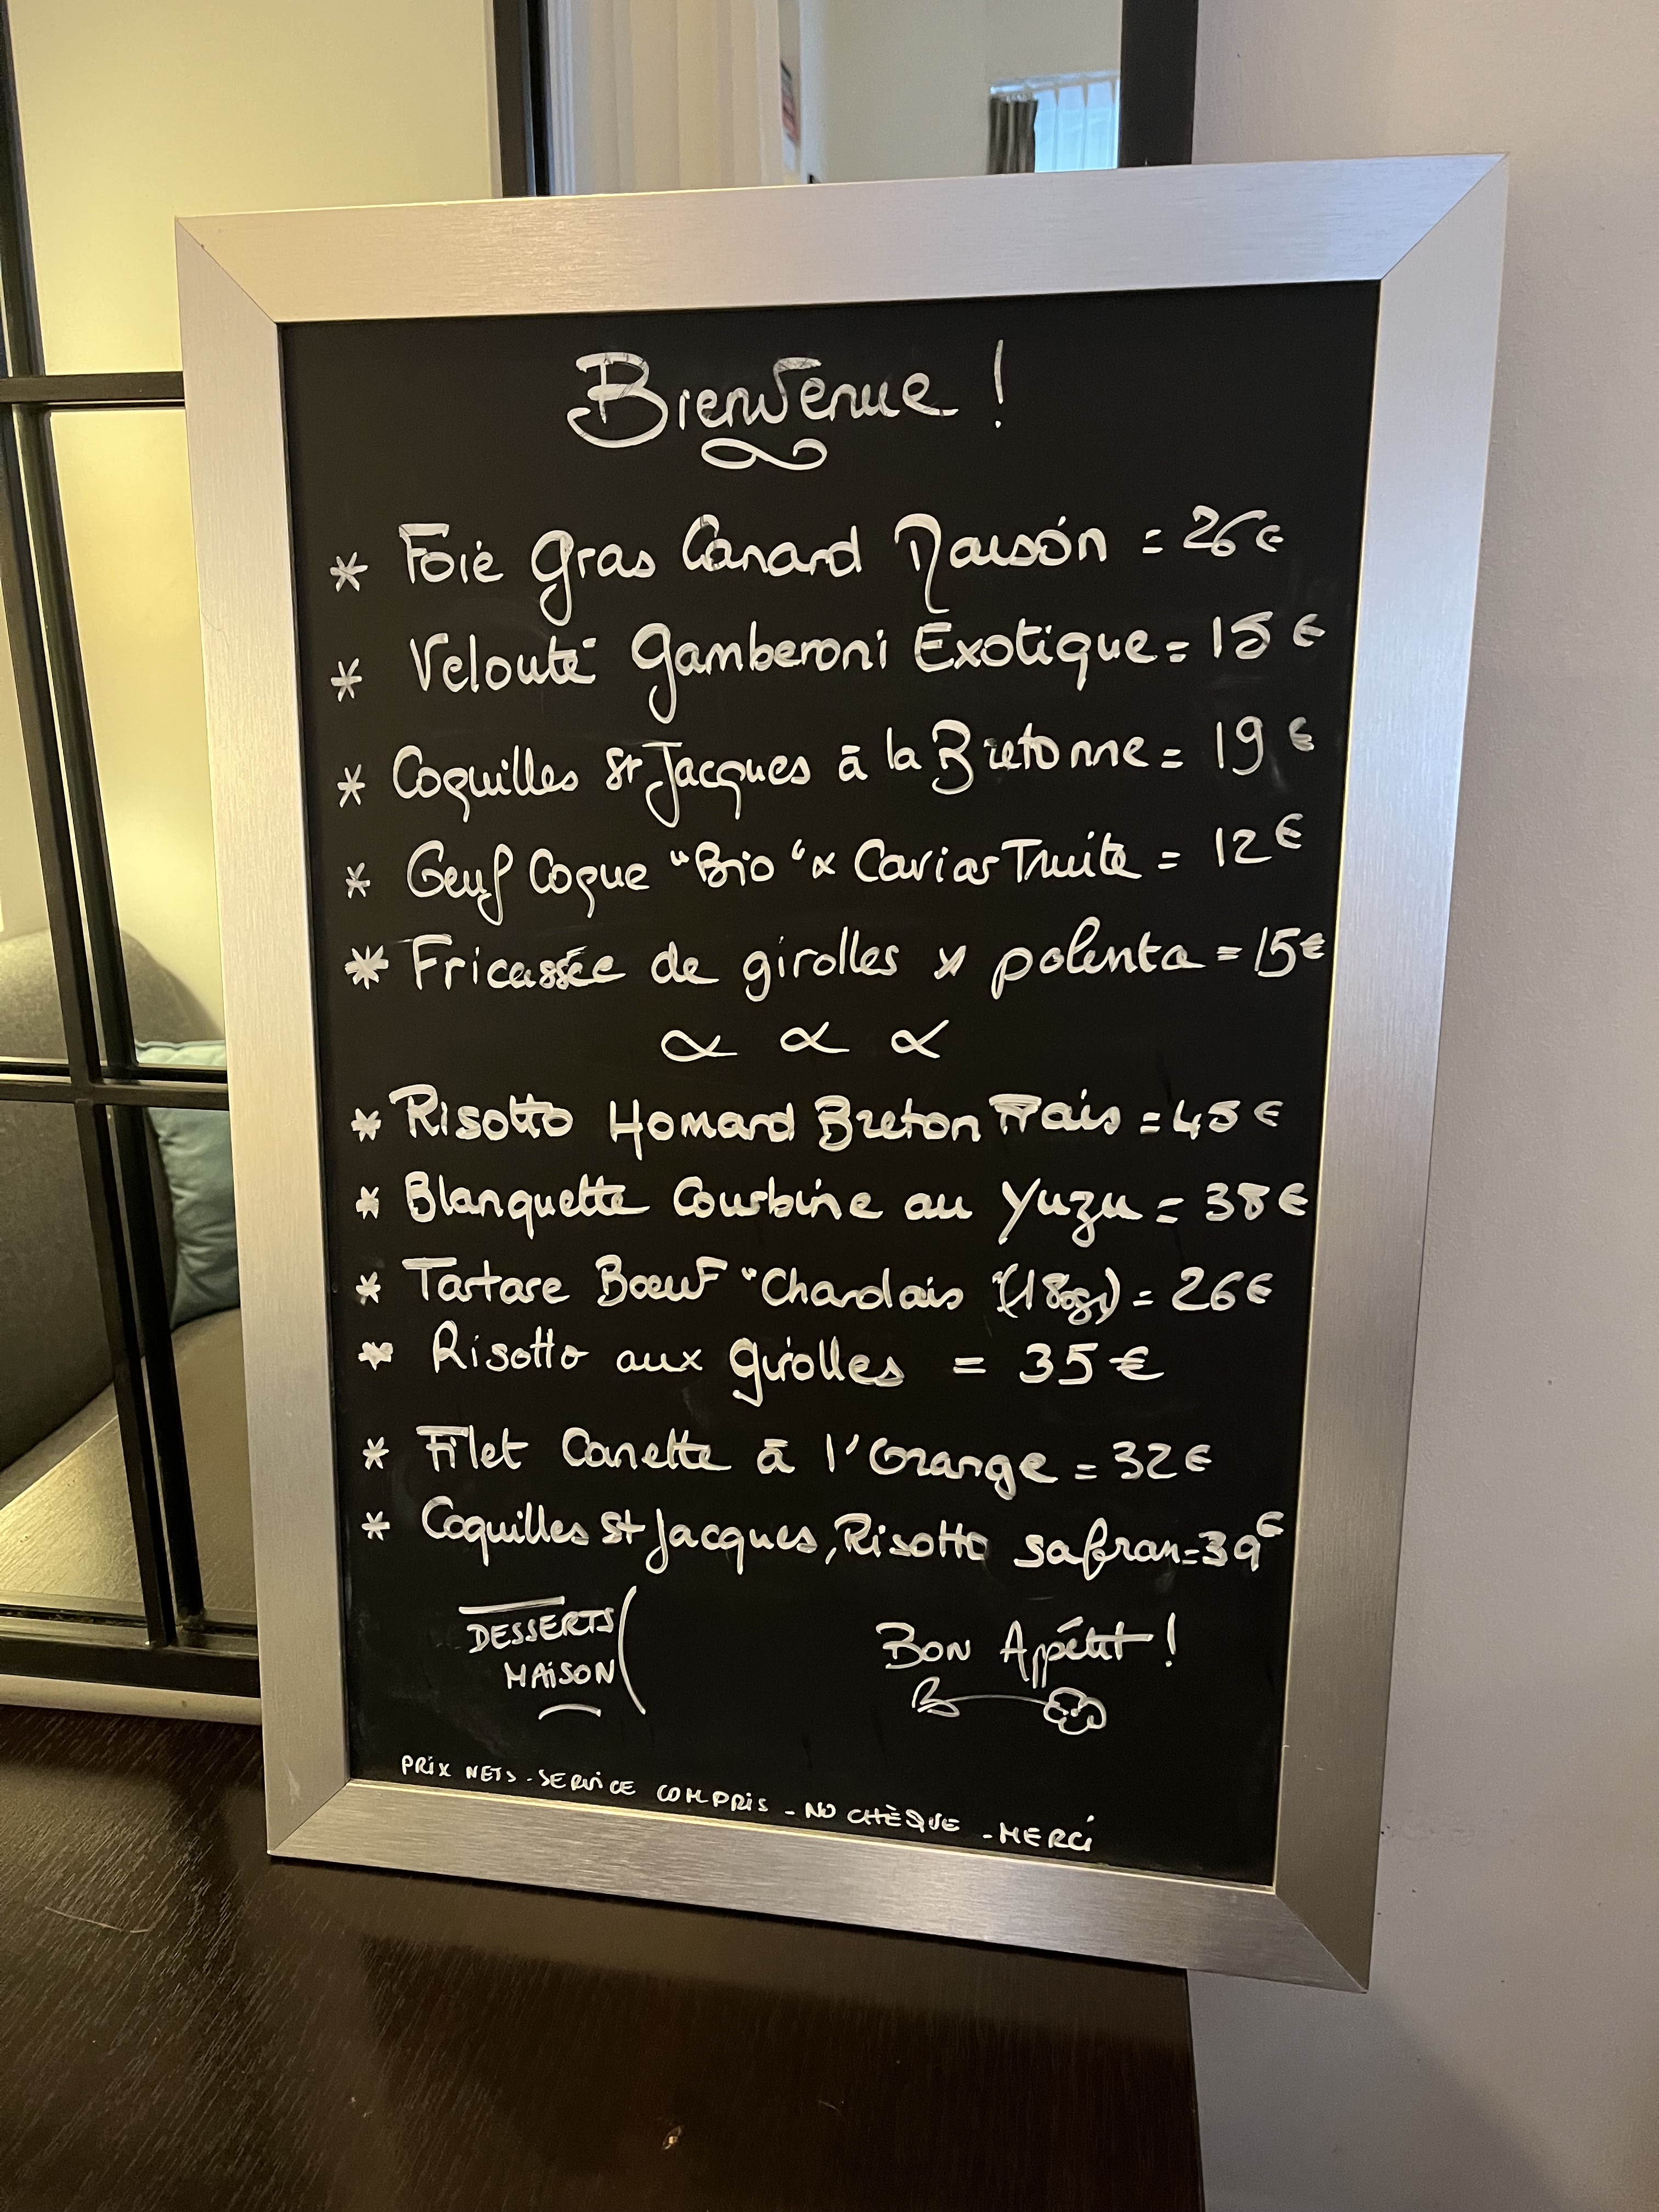 Bienvenue !
* Foie Gras Canard Maison = 26€
* Velouté Gamberoni Exotique = 15€
* Coquilles St Jacques à la Bretonne = 19€
* Oeuf Coque "Bio" & Caviar Truite = 12€
* Fricassée de girolles x polenta = 15€
* Risotto Homard Breton Frais = 45€
* Blanquette Courbine au Yuzu = 38€
* Tartare Boeuf "Charolais (180gr) = 26€
* Risotto aux girolles = 35€
* Filet Canette à l'Orange = 32€
* Coquilles St Jacques, Risotto safran = 39€
DESSERTS
MAISON
BON Appétit !
PRIX NETS - SERVICE COMPRIS - NO CHÈQUE - MERCI